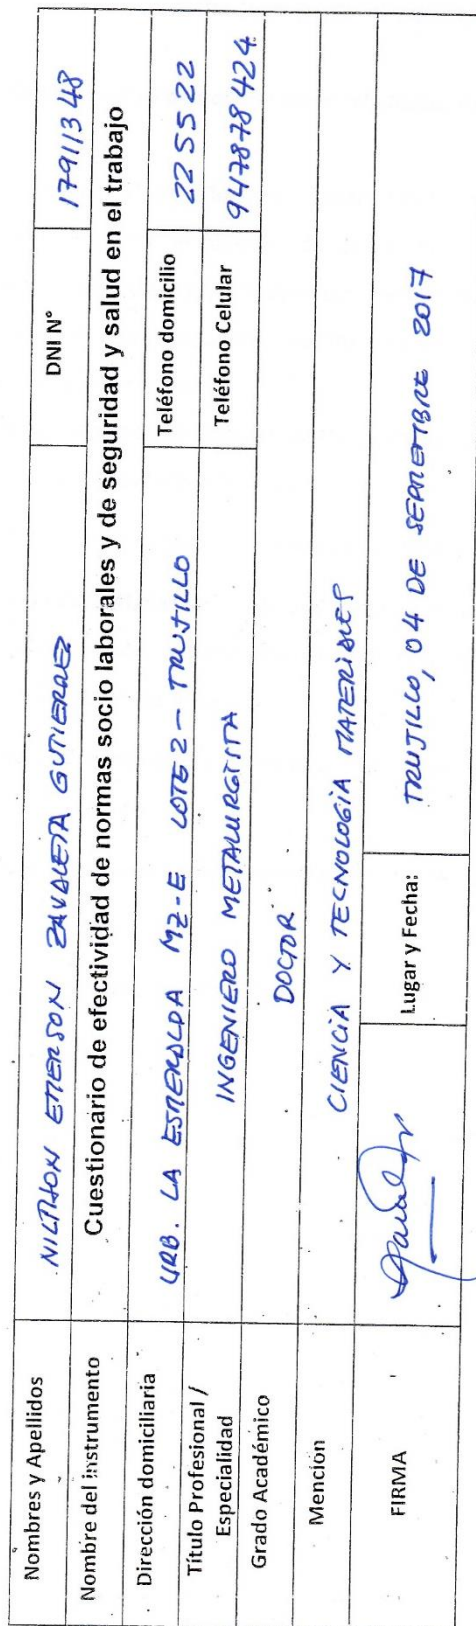 Nombres y Apellidos NILTHON EMERSON ZAVALETA GUTIERREZ DNI N° 17911348
Nombre del instrumento Cuestionario de efectividad de normas socio laborales y de seguridad y salud en el trabajo
Dirección domiciliaria URB. LA ESMERALDA MZ-E LOTE 2 - TRUJILLO Teléfono domicilio 225522
Título Profesional / Especialidad INGENIERO METALURGISTA Teléfono Celular 947878424
Grado Académico DOCTOR
Mencion CIENCIA Y TECNOLOGIA MATERIALES
FIRMA Lugar y Fecha: TRUJILLO, 04 DE SEPTIEMBRE 2017